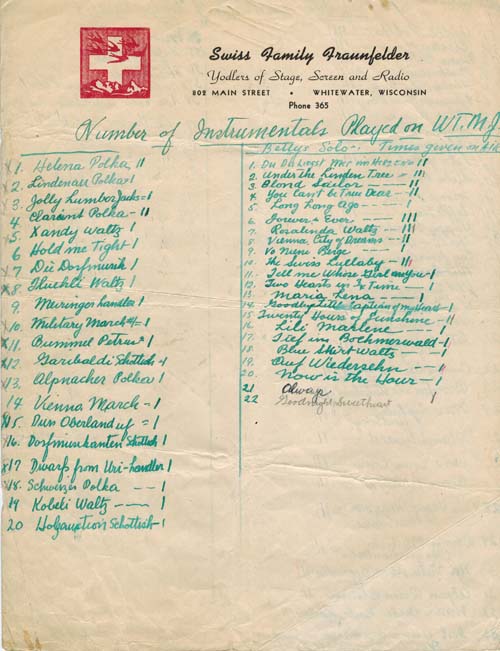 Swiss Family Fraunfelder
Yodlers of Stage, Screen and Radio
802 MAIN STREET • WHITEWATER, WISCONSIN
Phone 365
Number of Instrumentals Played on W.T.M.J.
x1. Helena Polka II
x2. Lindenau Polka - I
x3. Jolly Lumber Jacks = I
4. Clarinet Polka - II
x5. Xandy Waltz I
6 Hold me Tight - I
x7 Die Dorfmusik I
x8. Fluehli Waltz I
9. Meiringer Landler I
x10. Military March #1 = I
x11. Bummel Petrus I
x12 Garibaldi Schottish - I
x13. Alpnacher Polka I
14 Vienna March - I
x15. Durs Oberland uf = I
x16. Dorfmusikanten Schottish I
x17 Dwarfs from Uri - Landler I
x18. Schweizer Polka -- I
19 Kobeli Waltz --- I
20 Schottish - I
Betty's Solo - Times given on Air
1. Du Du Liegst Mir im Herzen II
2. Under the Linden Tree - III
3. Blond Sailor --- III
4. You Can't be True Dear - I
5. Long Long Ago --- I
6. Forever & Ever --- III
7. Rosalinda Waltz -- III
8. Vienna City of Dreams - II
9. Beige - I
10. The Swiss Lullaby -- II
11. Tell me Whose Girl are You - I
12. Two Hearts in 3/4 Time - I
13. Maria Lena -- I
14. Goodbye Little Captain of my Heart - I
15. Twenty Hours of Sunshine - II
16. Lili Marlene --- I
17. Tief im Boehmerwald - I
18. Blue Skirt Waltz -- I
19. Auf Wiedersehn -- I
20. Now is the Hour - I
21 Always I
22 Goodnight Sweetheart